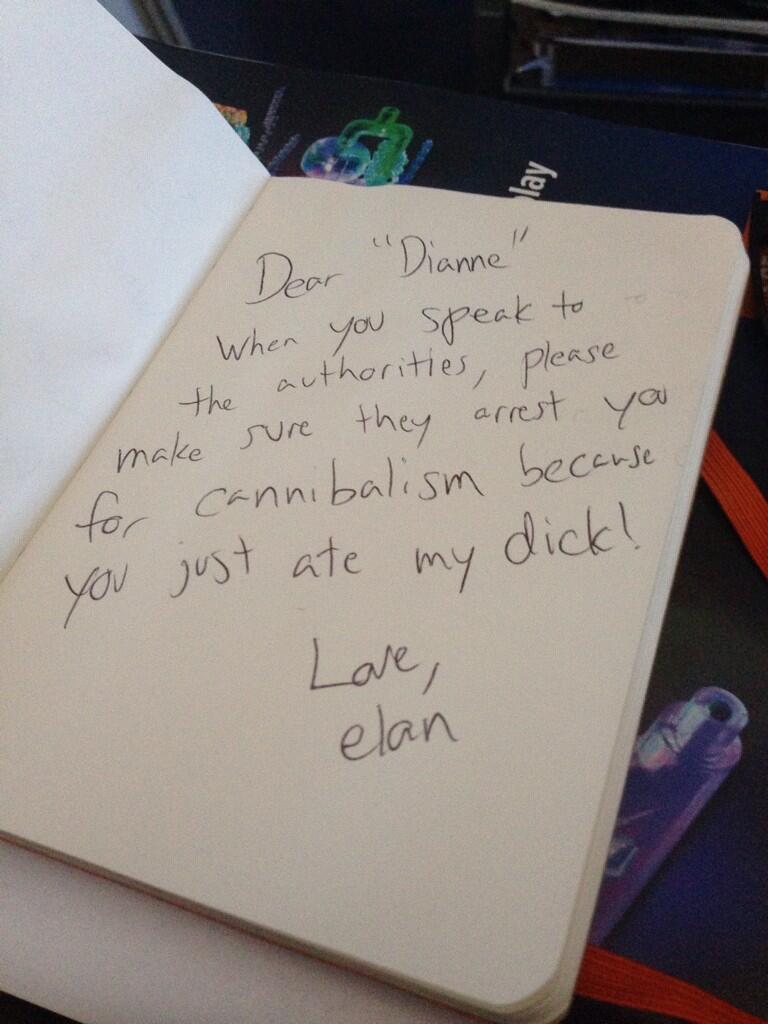 play
Dear "Dianne"
When you speak to
the authorities, please
make sure they arrest you
for cannibalism because
you just ate my dick!
Love,
elan